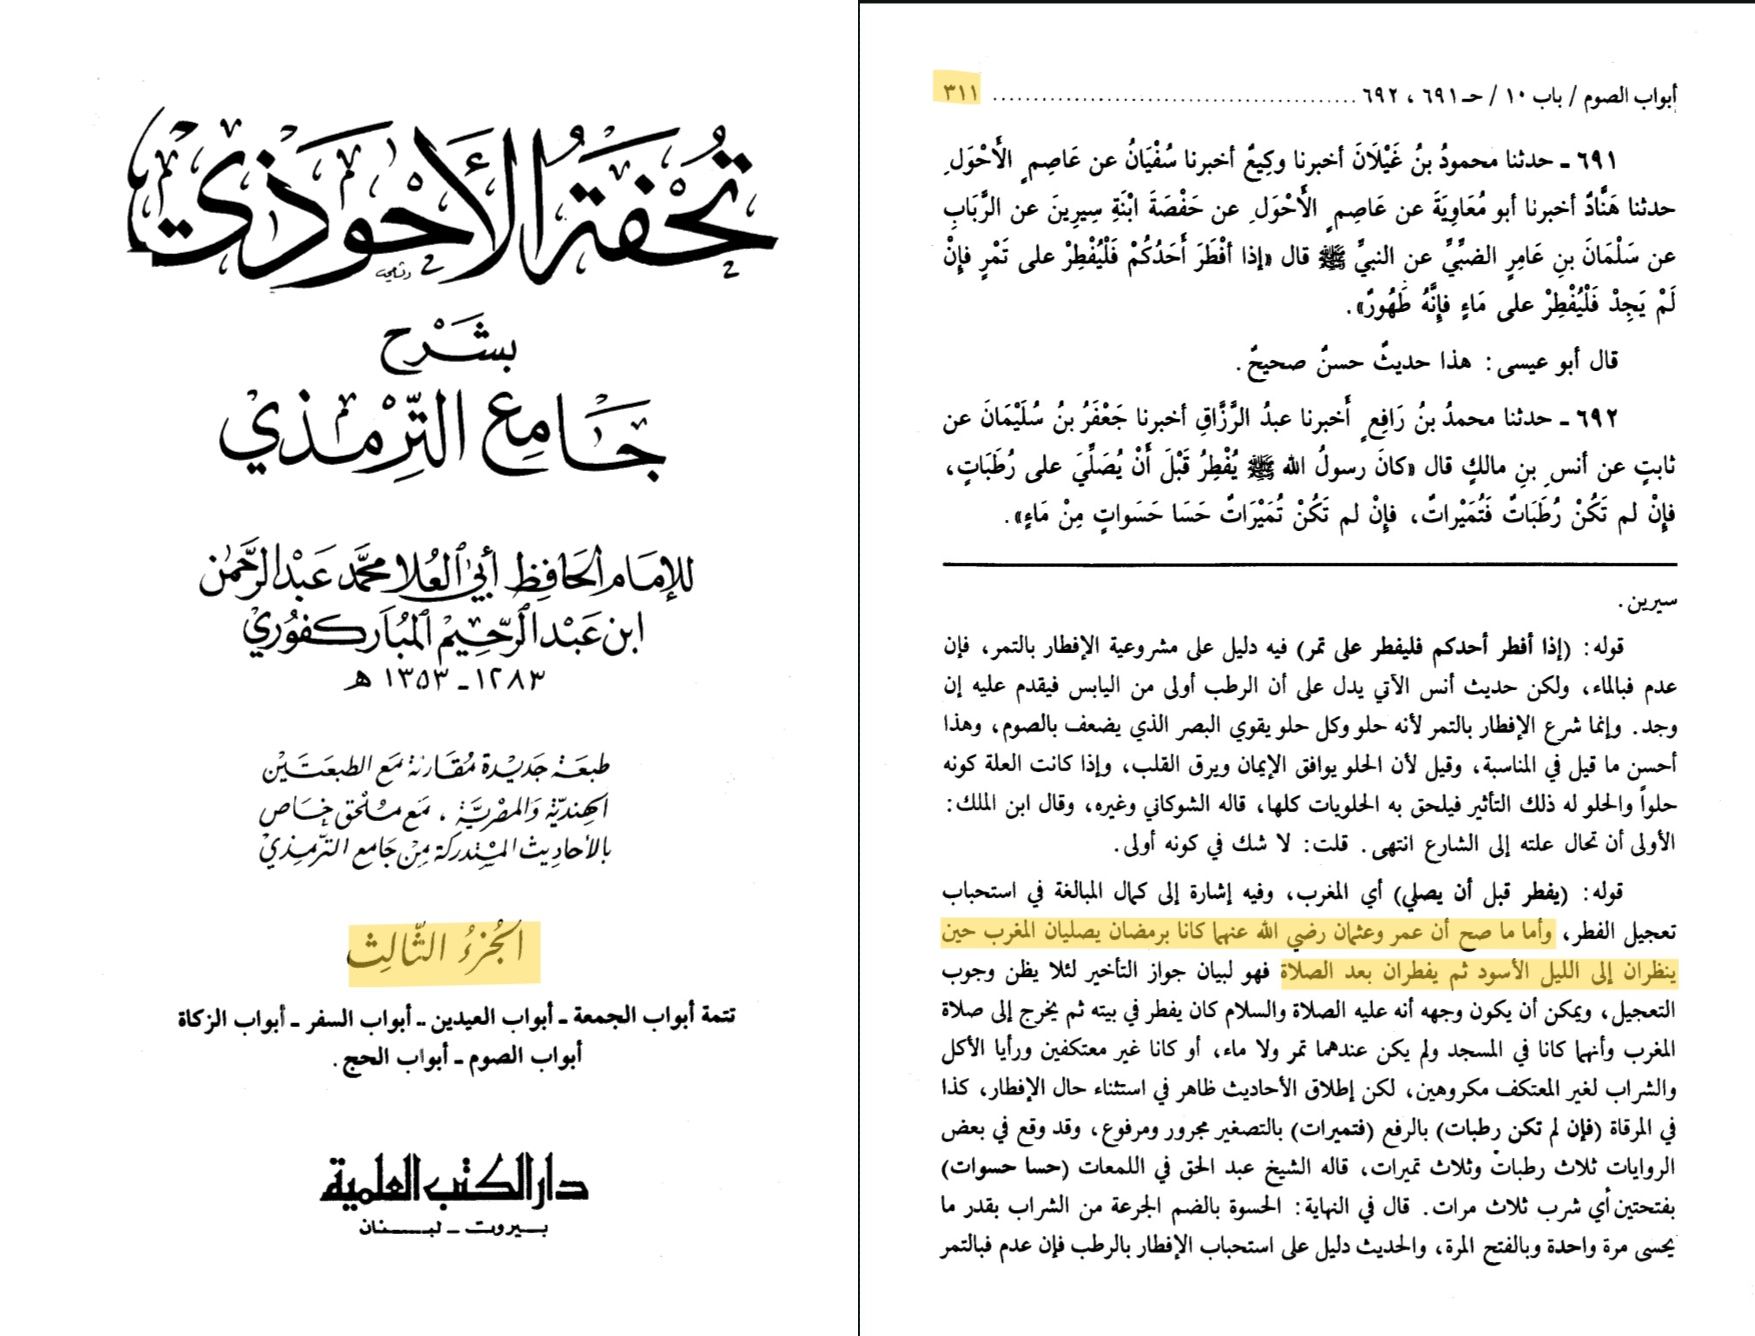 تُحْفَةُ الأَحْوَذِي
بشَرْح
جَامِع التِّرْمِذِيْ
للإِمَام الحَافِظ أَبِي العُلا محمَّد عَبْد الرَّحْمٰن
ابن عَبْد الرَّحِيْم المُبَاركفُورِيْ
١٢٨٣ - ١٣٥٣ هـ
طبعَة جَديْدة مُقَارنة مَع الطبعَتَين
الهنديّة وَالمصْريَّة ، مَع مُلحَق خَاص
بالأحَاديث المسْتدركة مِن جَامع الترّمذيْ
الجُزءُ الثَّالِث
تتمة أبواب الجمعة - أبواب العيدين - أبواب السفر - أبواب الزكاة
أبواب الصوم - أبواب الحج .
دار الكتب العلمية
بيروت - لبنان
أبواب الصوم / باب ١٠ / حـ ٦٩١ ، ٦٩٢ ........................................ ٣١١
٦٩١ - حدثنا محمودُ بنُ غَيْلَانَ أخبرنا وكِيعٌ أخبرنا سُفْيَانُ عن عَاصِمٍ الأَحْوَلِ
حدثنا هَنَّادٌ أخبرنا أبو مُعَاوِيَةَ عن عَاصِمٍ الأَحْوَلِ عن حَفْصَةَ ابْنَةِ سِيرِينَ عن الرَّبَابِ
عن سَلْمَانَ بنِ عَامِرٍ الضبِّيِّ عن النبيِّ ﷺ قال «إذا أفْطَرَ أَحَدُكُمْ فَلْيُفْطِرْ على تَمْرٍ فإِنْ
لَمْ يَجِدْ فَلْيُفْطِرْ على مَاءٍ فإِنَّهُ طَهُورٌ».
قال أبو عيسى: هذا حديثٌ حسنٌ صحيحٌ.
٦٩٢ - حدثنا محمدُ بنُ رَافِعٍ أَخبرنا عبدُ الرَّزَّاقِ أخبرنا جَعْفَرُ بنُ سُلَيْمَانَ عن
ثابتٍ عن أنسِ بنِ مالكٍ قال «كانَ رسولُ الله ﷺ يُفْطِرُ قَبْلَ أَنْ يُصَلِّيَ على رُطَبَاتٍ،
فإِنْ لم تَكُنْ رُطَبَاتٌ فَتُمَيْراتٌ، فإِنْ لم تَكُنْ تُمَيْرَاتٌ حَسَا حَسَواتٍ مِنْ مَاءٍ».
سيرين.
قوله: (إذا أفطر أحدكم فليفطر على تمر) فيه دليل على مشروعية الإفطار بالتمر، فإن
عدم فبالماء، ولكن حديث أنس الآتي يدل على أن الرطب أولى من اليابس فيقدم عليه إن
وجد. وإنما شرع الإفطار بالتمر لأنه حلو وكل حلو يقوي البصر الذي يضعف بالصوم، وهذا
أحسن ما قيل في المناسبة، وقيل لأن الحلو يوافق الإيمان ويرق القلب، وإذا كانت العلة كونه
حلواً والحلو له ذلك التأثير فيلحق به الحلويات كلها، قاله الشوكاني وغيره، وقال ابن الملك:
الأولى أن تحال علته إلى الشارع انتهى. قلت: لا شك في كونه أولى.
قوله: (يفطر قبل أن يصلي) أي المغرب، وفيه إشارة إلى كمال المبالغة في استحباب
تعجيل الفطر، وأما ما صح أن عمر وعثمان رضي الله عنهما كانا برمضان يصليان المغرب حين
ينظران إلى الليل الأسود ثم يفطران بعد الصلاة فهو لبيان جواز التأخير لئلا يظن وجوب
التعجيل، ويمكن أن يكون وجهه أنه عليه الصلاة والسلام كان يفطر في بيته ثم يخرج إلى صلاة
المغرب وأنهما كانا في المسجد ولم يكن عندهما تمر ولا ماء، أو كانا غير معتكفين ورأيا الأكل
والشراب لغير المعتكف مكروهين، لكن إطلاق الأحاديث ظاهر في استثناء حال الإفطار، كذا
في المرقاة (فإن لم تكن رطبات) بالرفع (فتميرات) بالتصغير مجرور ومرفوع، وقد وقع في بعض
الروايات ثلاث رطبات وثلاث تميرات، قاله الشيخ عبد الحق في اللمعات (حسا حسوات)
بفتحتين أي شرب ثلاث مرات. قال في النهاية: الحسوة بالضم الجرعة من الشراب بقدر ما
يحسى مرة واحدة وبالفتح المرة، والحديث دليل على استحباب الإفطار بالرطب فإن عدم فبالتمر